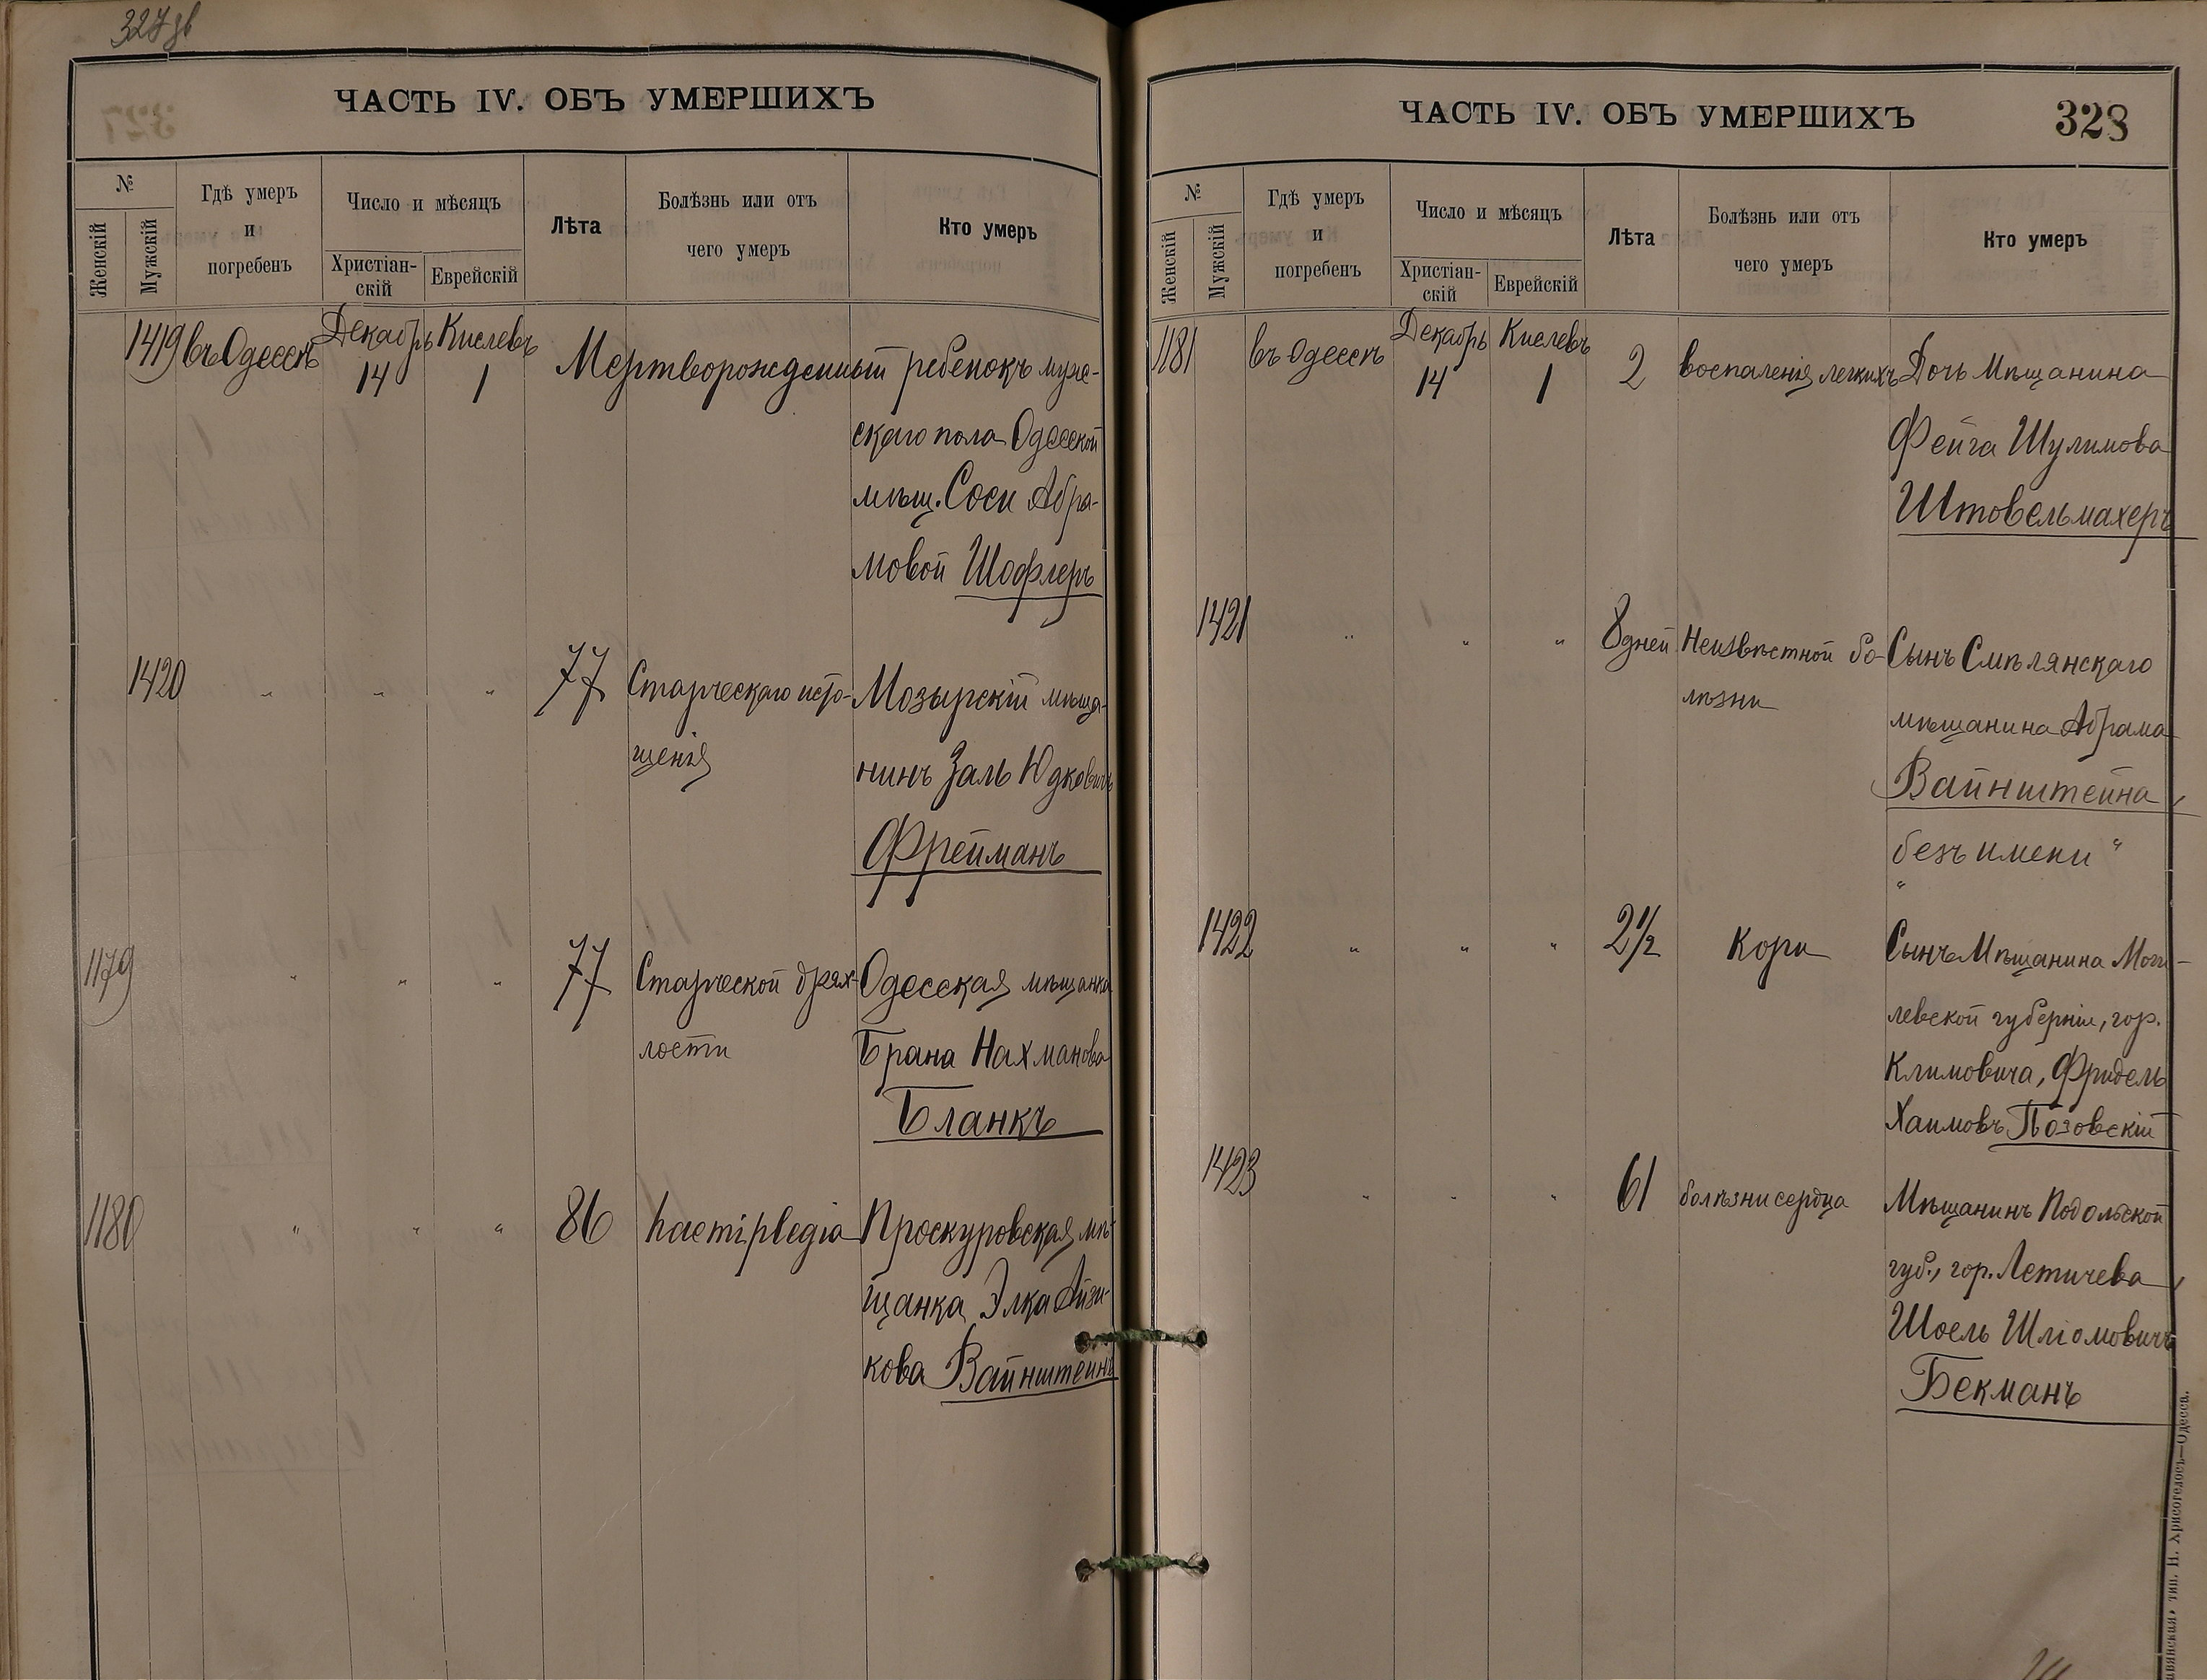 327 об
ЧАСТЬ IV. ОБЪ УМЕРШИХЪ
№
Женскій
Мужскій
Гдѣ умеръ
и
погребенъ
Число и мѣсяцъ
Христіан-
скій
Еврейскій
Лѣта
Болѣзнь или отъ
чего умеръ
Кто умеръ
1419 въ Одессѣ Декабрь 14 Кислевъ 1 Мертворожденный ребенокъ муже-
скаго пола Одесской
мѣщ. Соси Абра-
мовой Шофлеръ
1420 " " " 77 Старческаго исто- Мозырскій мѣща-
щенія нинъ Залъ Юдковичъ
Фрейманъ
1179 " " " 77 Старческой дрях- Одесская мѣщанка
лости Брана Нахманова
Бланкъ
1180 " " " 86 haemiplegia Проскуровская мѣ-
щанка Элка Айзи-
кова Вайнштейнъ
ЧАСТЬ IV. ОБЪ УМЕРШИХЪ
328
№
Женскій
Мужскій
Гдѣ умеръ
и
погребенъ
Число и мѣсяцъ
Христіан-
скій
Еврейскій
Лѣта
Болѣзнь или отъ
чего умеръ
Кто умеръ
1181 въ Одессѣ Декабрь 14 Кислевъ 1 2 воспаленія легкихъ Дочь Мѣщанина
Фейга Шулимова
Штовельмахеръ
1421 " " " 8 дней Неизвѣстной бо- Сынъ Смѣлянскаго
лѣзни мѣщанина Абрама
Вайнштейна,
"безъ имени"
1422 " " " 2 1/2 Кори Сынъ Мѣщанина Моги-
левской губерніи, гор.
Климовича, Фридель
Хаимовъ Позовскій
1423 " " " 61 болѣзни сердца Мѣщанинъ Подольской
губ., гор. Летичева,
Шоель Шліомовичъ
Бекманъ
тип. Н. Хрисогелосъ—Одесса.